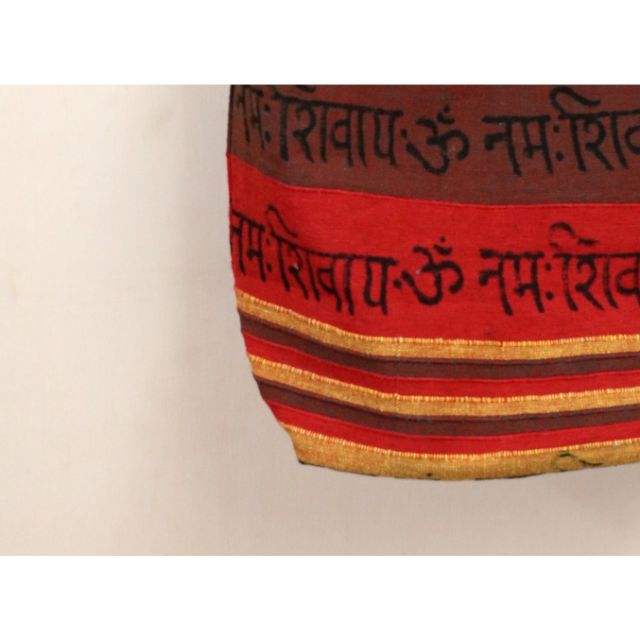 नमः शिवाय · ॐ नमः शिव
नमः शिवाय · ॐ नमः शिव